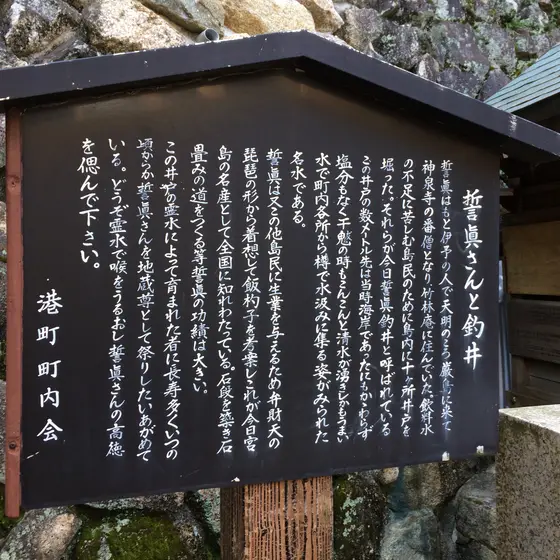 誓眞さんと釣井
誓眞はもと伊予の人で天明のころ厳島に来て
神泉寺の番僧となり竹林庵に住んでいた。飲料水
の不足に苦しむ島民のために島内に十ヶ所井戸を
掘った。それらが今日誓眞釣井と呼ばれている
この井戸の数メートル先は当時海岸であったにもかゝわらず
塩分もなく干魃の時もこんこんと清水が湧きしかもうまい
水で町内各所から樽で水汲みに集る姿がみられた
名水である。
誓眞は又この他島民に生業を与えるため弁財天の
琵琶の形から着想して飯杓子を考案しこれが今日宮
島の名産として全国に知れわたっている。石段を築き石
畳みの道をつくる等誓眞の功績は大きい。
この井戸の霊水によって育まれた者に長寿多くいつの
頃からか誓眞さんを地蔵尊として祭りしたいあがめて
いる。どうぞ霊水で喉をうるおし誓眞さんの高徳
を偲んで下さい。
港町町内会